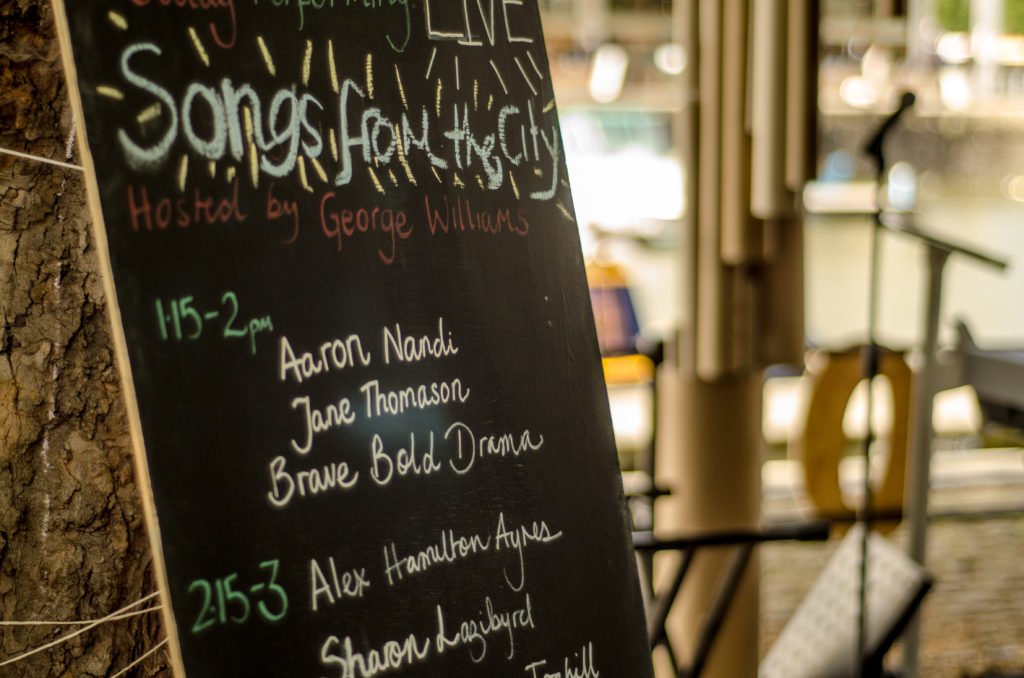 Performing LIVE
Songs from the City
Hosted by George Williams
1.15-2pm
Aaron Nandi
Jane Thomason
Brave Bold Drama
2.15-3
Alex Hamilton Ayres
Sharon Lazibyrd